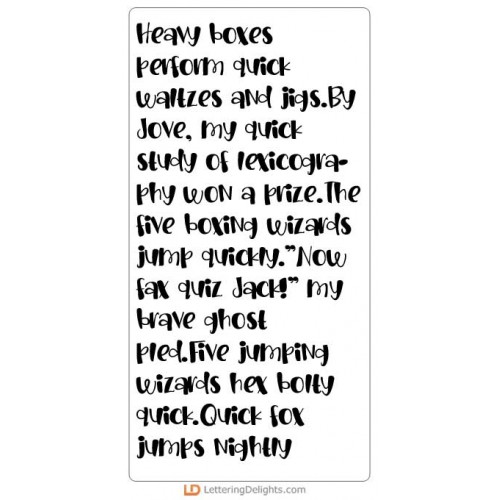 Heavy boxes
perform quick
waltzes and jigs.By
Jove, my quick
study of lexicogra-
phy won a prize.The
five boxing wizards
jump quickly."Now
fax quiz Jack!" my
brave ghost
pled.Five jumping
wizards hex bolty
quick.Quick fox
jumps nightly
LD LetteringDelights.com